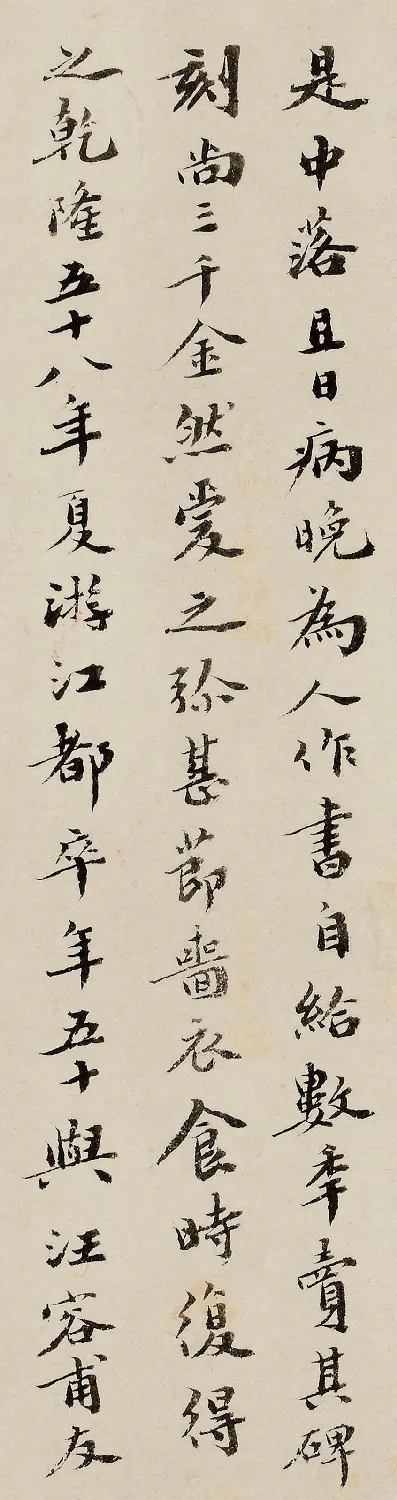 是中落且日病晚為人作書自給數年賣其碑
刻尚三千金然愛之彌甚節嗇衣食時復得
之乾隆五十八年夏游江都卒年五十與汪容甫友